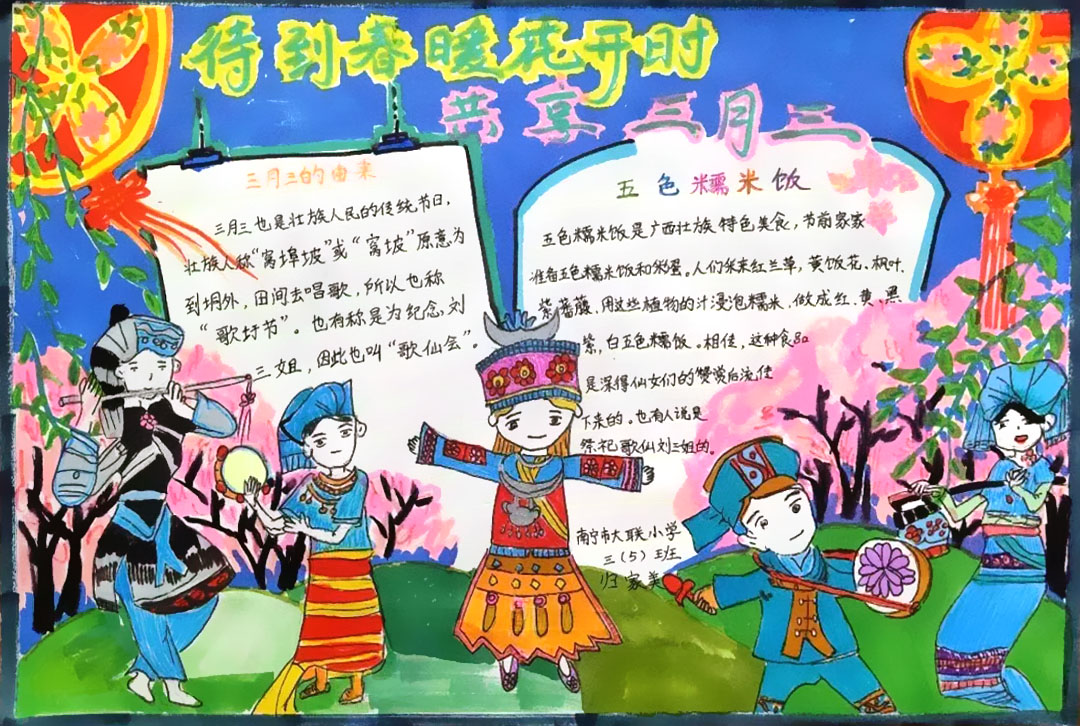 待到春暖花开时
共享三月三
三月三的由来
三月三也是壮族人民的传统节日,
壮族人称“窝埠坡”或“窝坡”原意为
到垌外,田间去唱歌,所以也称
“歌圩节”。也有称是为纪念刘
三姐,因此也叫“歌仙会”。
五色糯米饭
五色糯米饭是广西壮族特色美食,节前家家
准备五色糯米饭和彩蛋。人们采来红兰草,黄饭花、枫叶、
紫蕃藤,用这些植物的汁浸泡糯米,做成红、黄、黑
紫,白五色糯饭。相传,这种食品
是深得仙女们的赞赏后流传
下来的。也有人说是
祭祀歌仙刘三姐的。
南宁市大联小学
三(5)班
归家